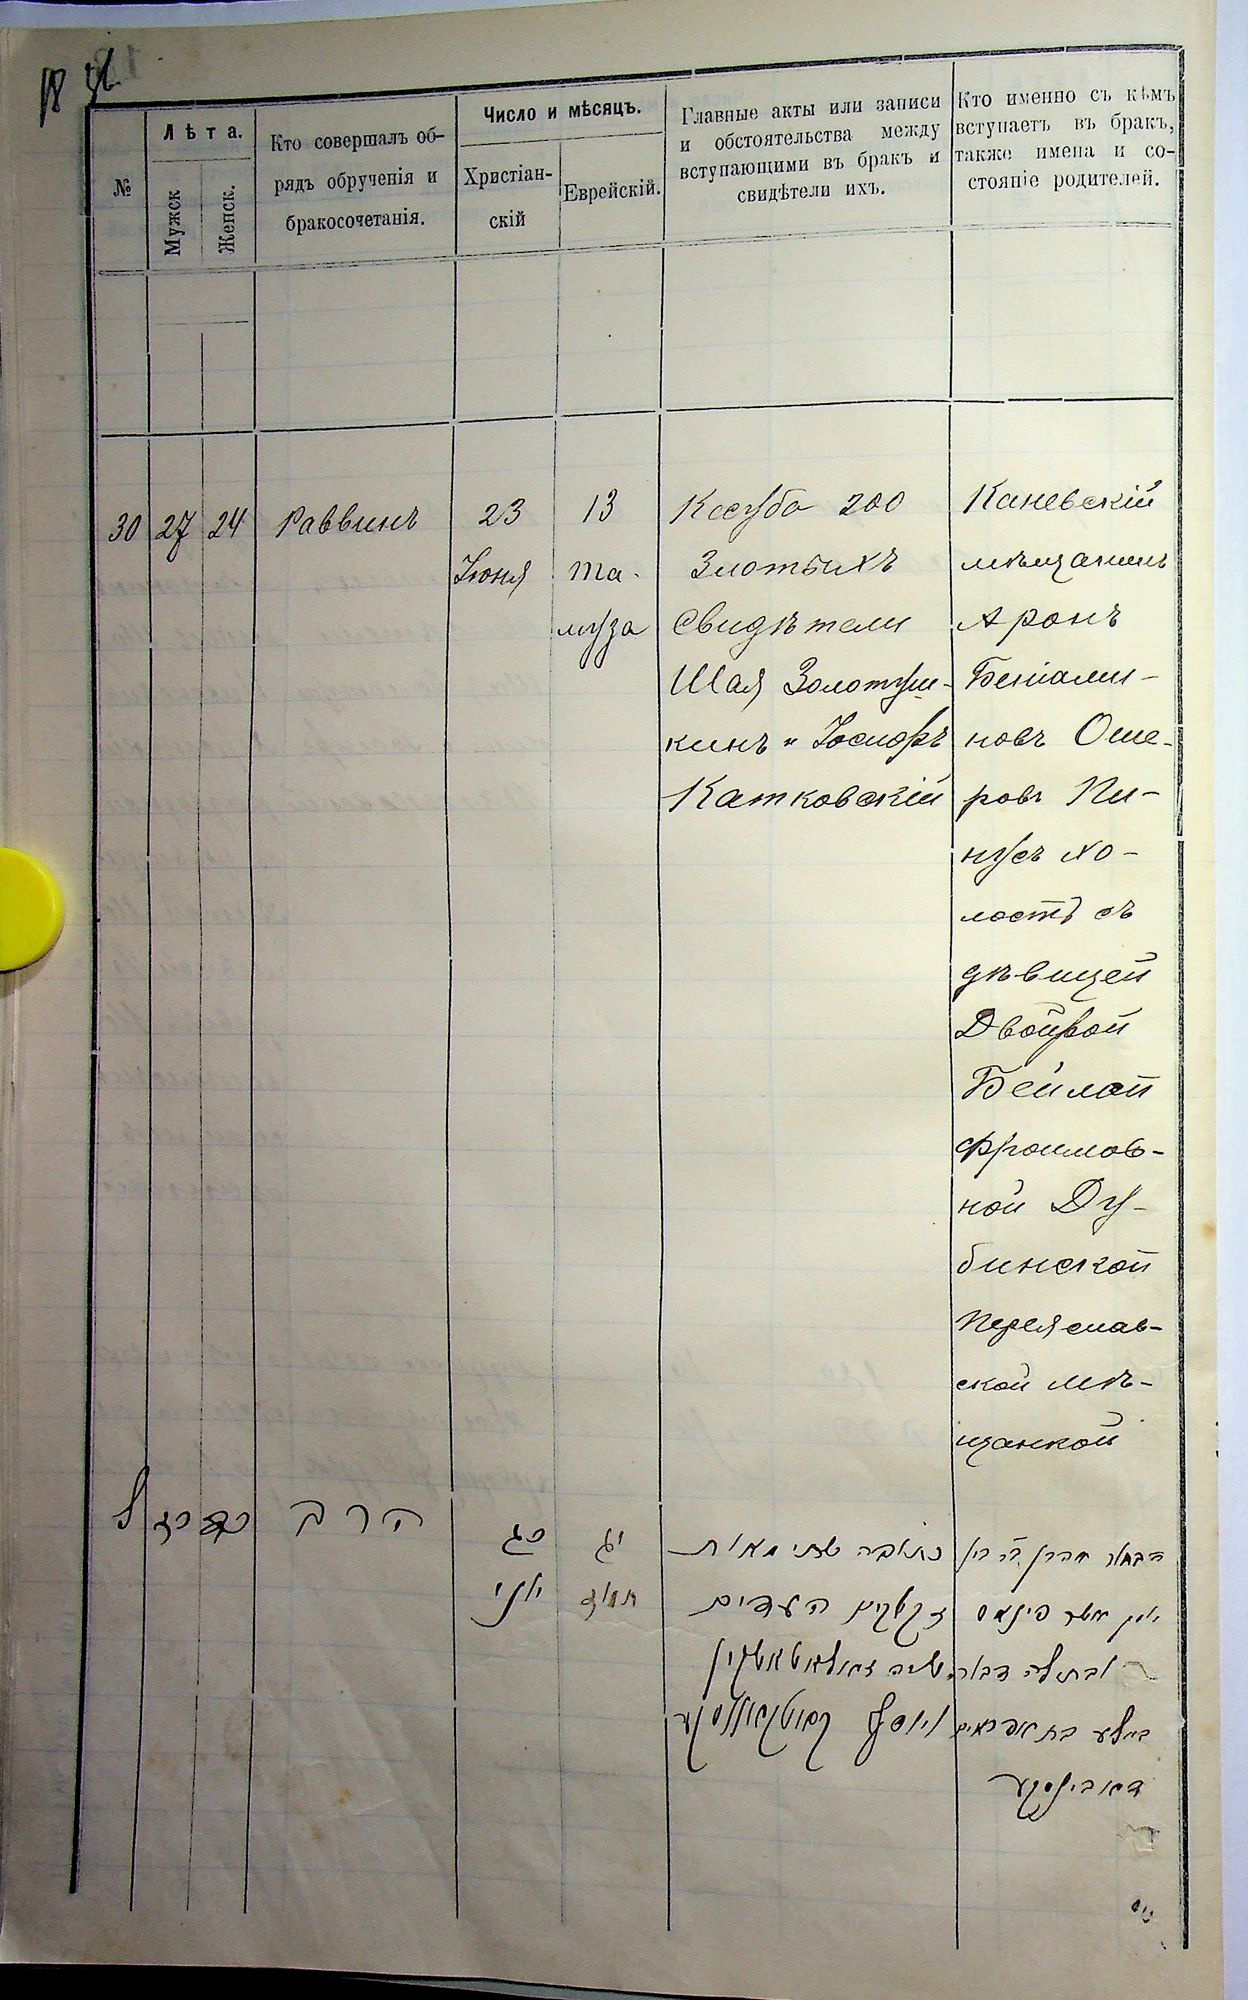 №
Лѣта.
Мужск
Женск.
Кто совершалъ об-
рядъ обрученія и
бракосочетанія.
Число и мѣсяцъ.
Христіан-
скій
Еврейскій.
Главные акты или записи
и обстоятельства между
вступающими въ бракъ и
свидѣтели ихъ.
Кто именно съ кѣмъ
вступаетъ въ бракъ,
также имена и со-
стояніе родителей.
30
27
24
Раввинъ
23
Іюня
13
Та-
муза
Ксуба 200
Злотыхъ
Свидѣтели
Шая Золотуш-
кинъ и Іосифъ
Катковскій
Каневскій
мѣщанинъ
Аронъ
Беніами-
новъ Оше-
ровъ Пи-
нусъ хо-
лостъ съ
дѣвицей
Двойрой
Бейлой
Фроимов-
ной Ду-
бинской
Переяслав-
ской мѣ-
щанкой
ל
כז
כד
הרב
כג
יוני
יג
תמוז
כתובה שתי מאות
זקוקים העדים
ויוסף
הבחור אהרן
אשר פינוס
בת אפרים